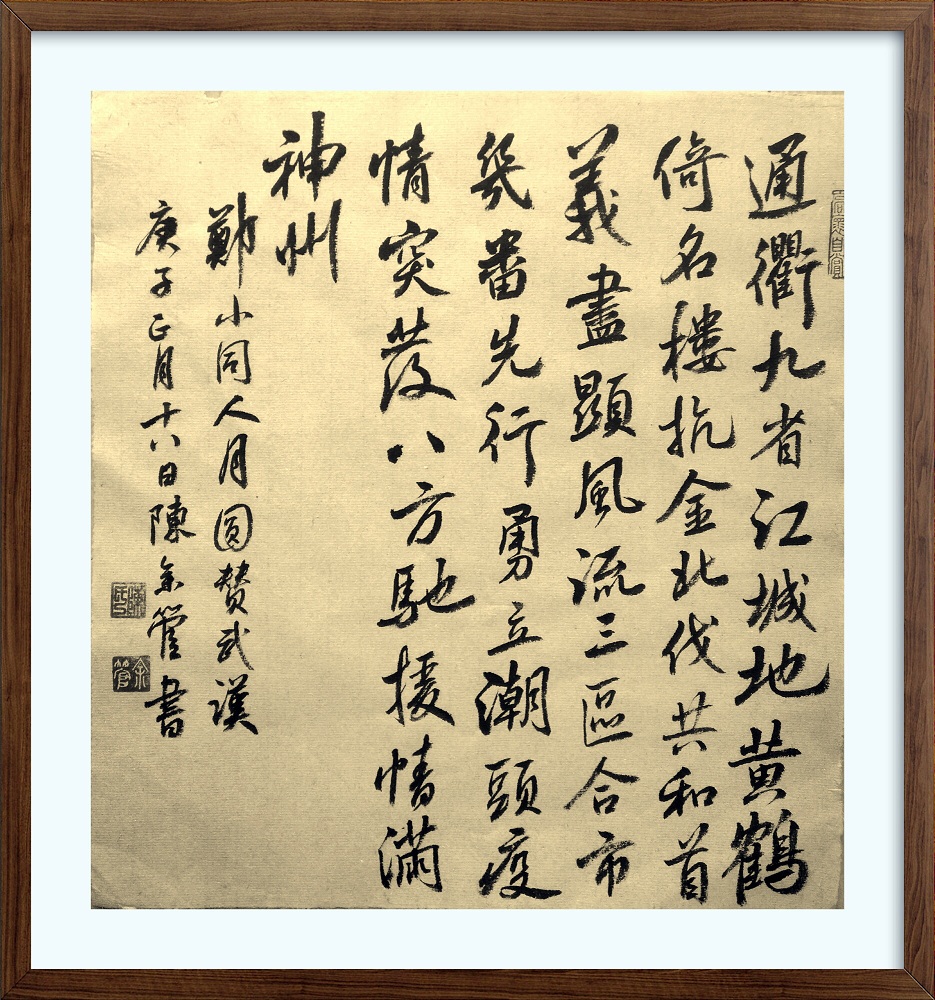 通衢九省江城地黄鶴
倚名樓抗金北伐共和首
義盡顯風流三區合市
幾番先行勇立潮頭疫
情突發八方馳援情滿
神州
鄭小同人月圓贊武漢
庚子正月十八日陳余管書